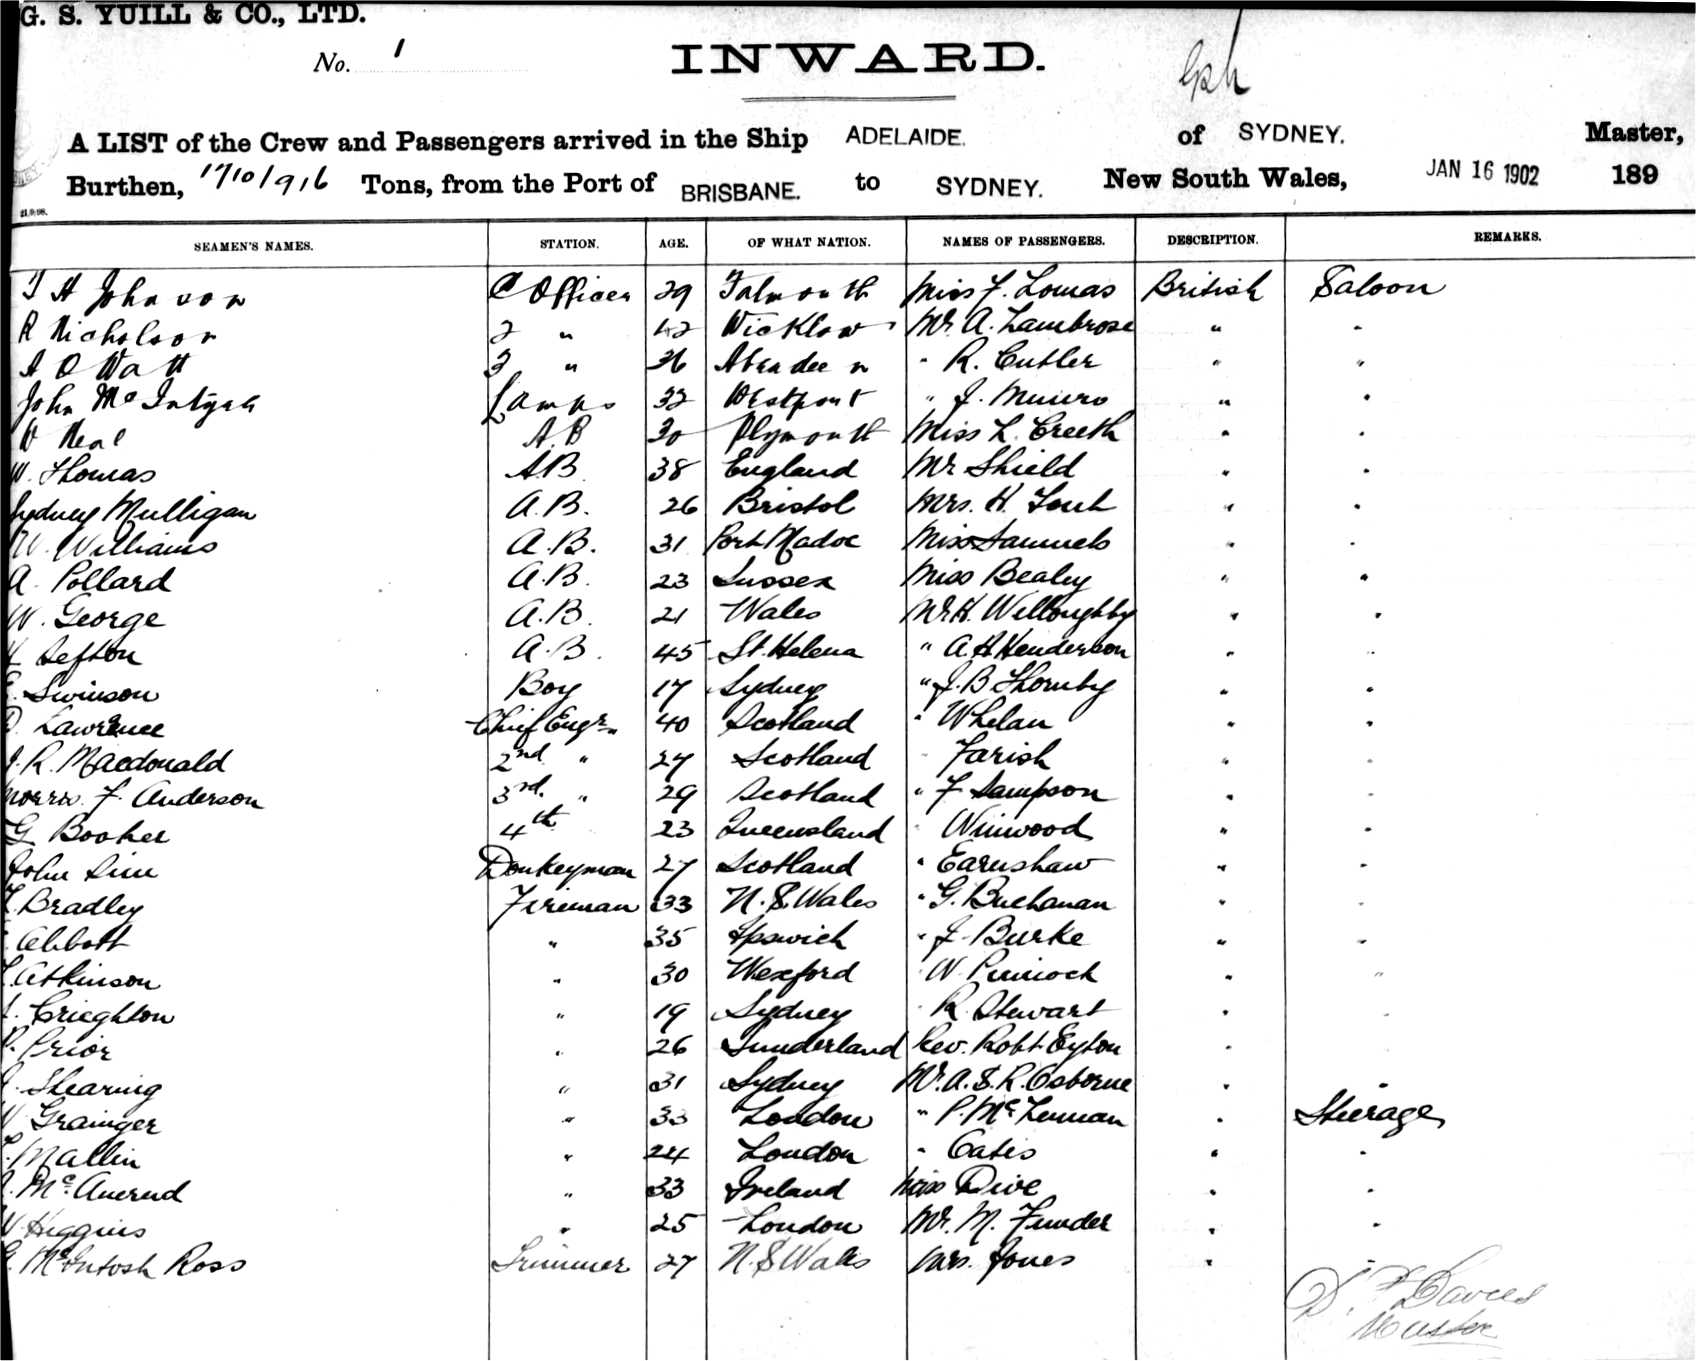 G. S. YUILL & CO., LTD.
No. 1
INWARD.
A LIST of the Crew and Passengers arrived in the Ship ADELAIDE. of SYDNEY. Master,
Burthen, 1710/916 Tons, from the Port of BRISBANE. to SYDNEY. New South Wales, JAN 16 1902 189
21.9.98.
SEAMEN'S NAMES. STATION. AGE. OF WHAT NATION. NAMES OF PASSENGERS. DESCRIPTION. REMARKS.
T H Johnson C Officer 29 Falmouth Miss F. Lomas British Saloon
R Nicholson 2 " 42 Wicklow Mr. A. Lambrose " "
A O Watt 3 " 36 Aberdeen " R. Cutler " "
John McIntyre Lamps 32 Westport " J. Munro " "
W Neal A.B 30 Plymouth Miss L. Creeth " "
W. Thomas A.B. 38 England Mr Shield " "
Sydney Mulligan A.B. 26 Bristol Mrs. H. " "
W. Williams A.B. 31 Port Madoc Miss Samuels " "
A. Pollard A.B. 23 Sussex Miss Bealey " "
W. George A.B. 21 Wales Mr H. Willoughby " "
Sefton A.B. 45 St. Helena " A H Henderson " "
E. Swinson Boy 17 Sydney " J. B Thornby " "
D. Lawrence Chief Engr. 40 Scotland " Whelan " "
J. R. Macdonald 2nd " 27 Scotland " Farish " "
Morris. F. Anderson 3rd. " 29 Scotland " F Sampson " "
G Booker 4th 23 Queensland " Winwood " "
John Sim Donkeyman 27 Scotland " Earnshaw " "
Bradley Fireman 33 N. S. Wales " G. Buchanan " "
Abbott " 35 Ipswich " J. Burke " "
Atkinson " 30 Wexford " W. Pinnock " "
Crieghton " 19 Sydney " R. Stewart " "
P. Prior " 26 Sunderland Rev. Robt Eyton "
Shearing " 31 Sydney Mr. A. S. R. Osborne " "
W Grainger " 33 London " P. McLennan " Steerage
Mallin " 24 London " Oates " "
33 Ireland Miss Dive " "
W Higgins " 25 London Mr. M. Funder " "
G. McIntosh Ross Trimmer 27 N. S Wales Mrs. Jones " "
D. Davies
Master